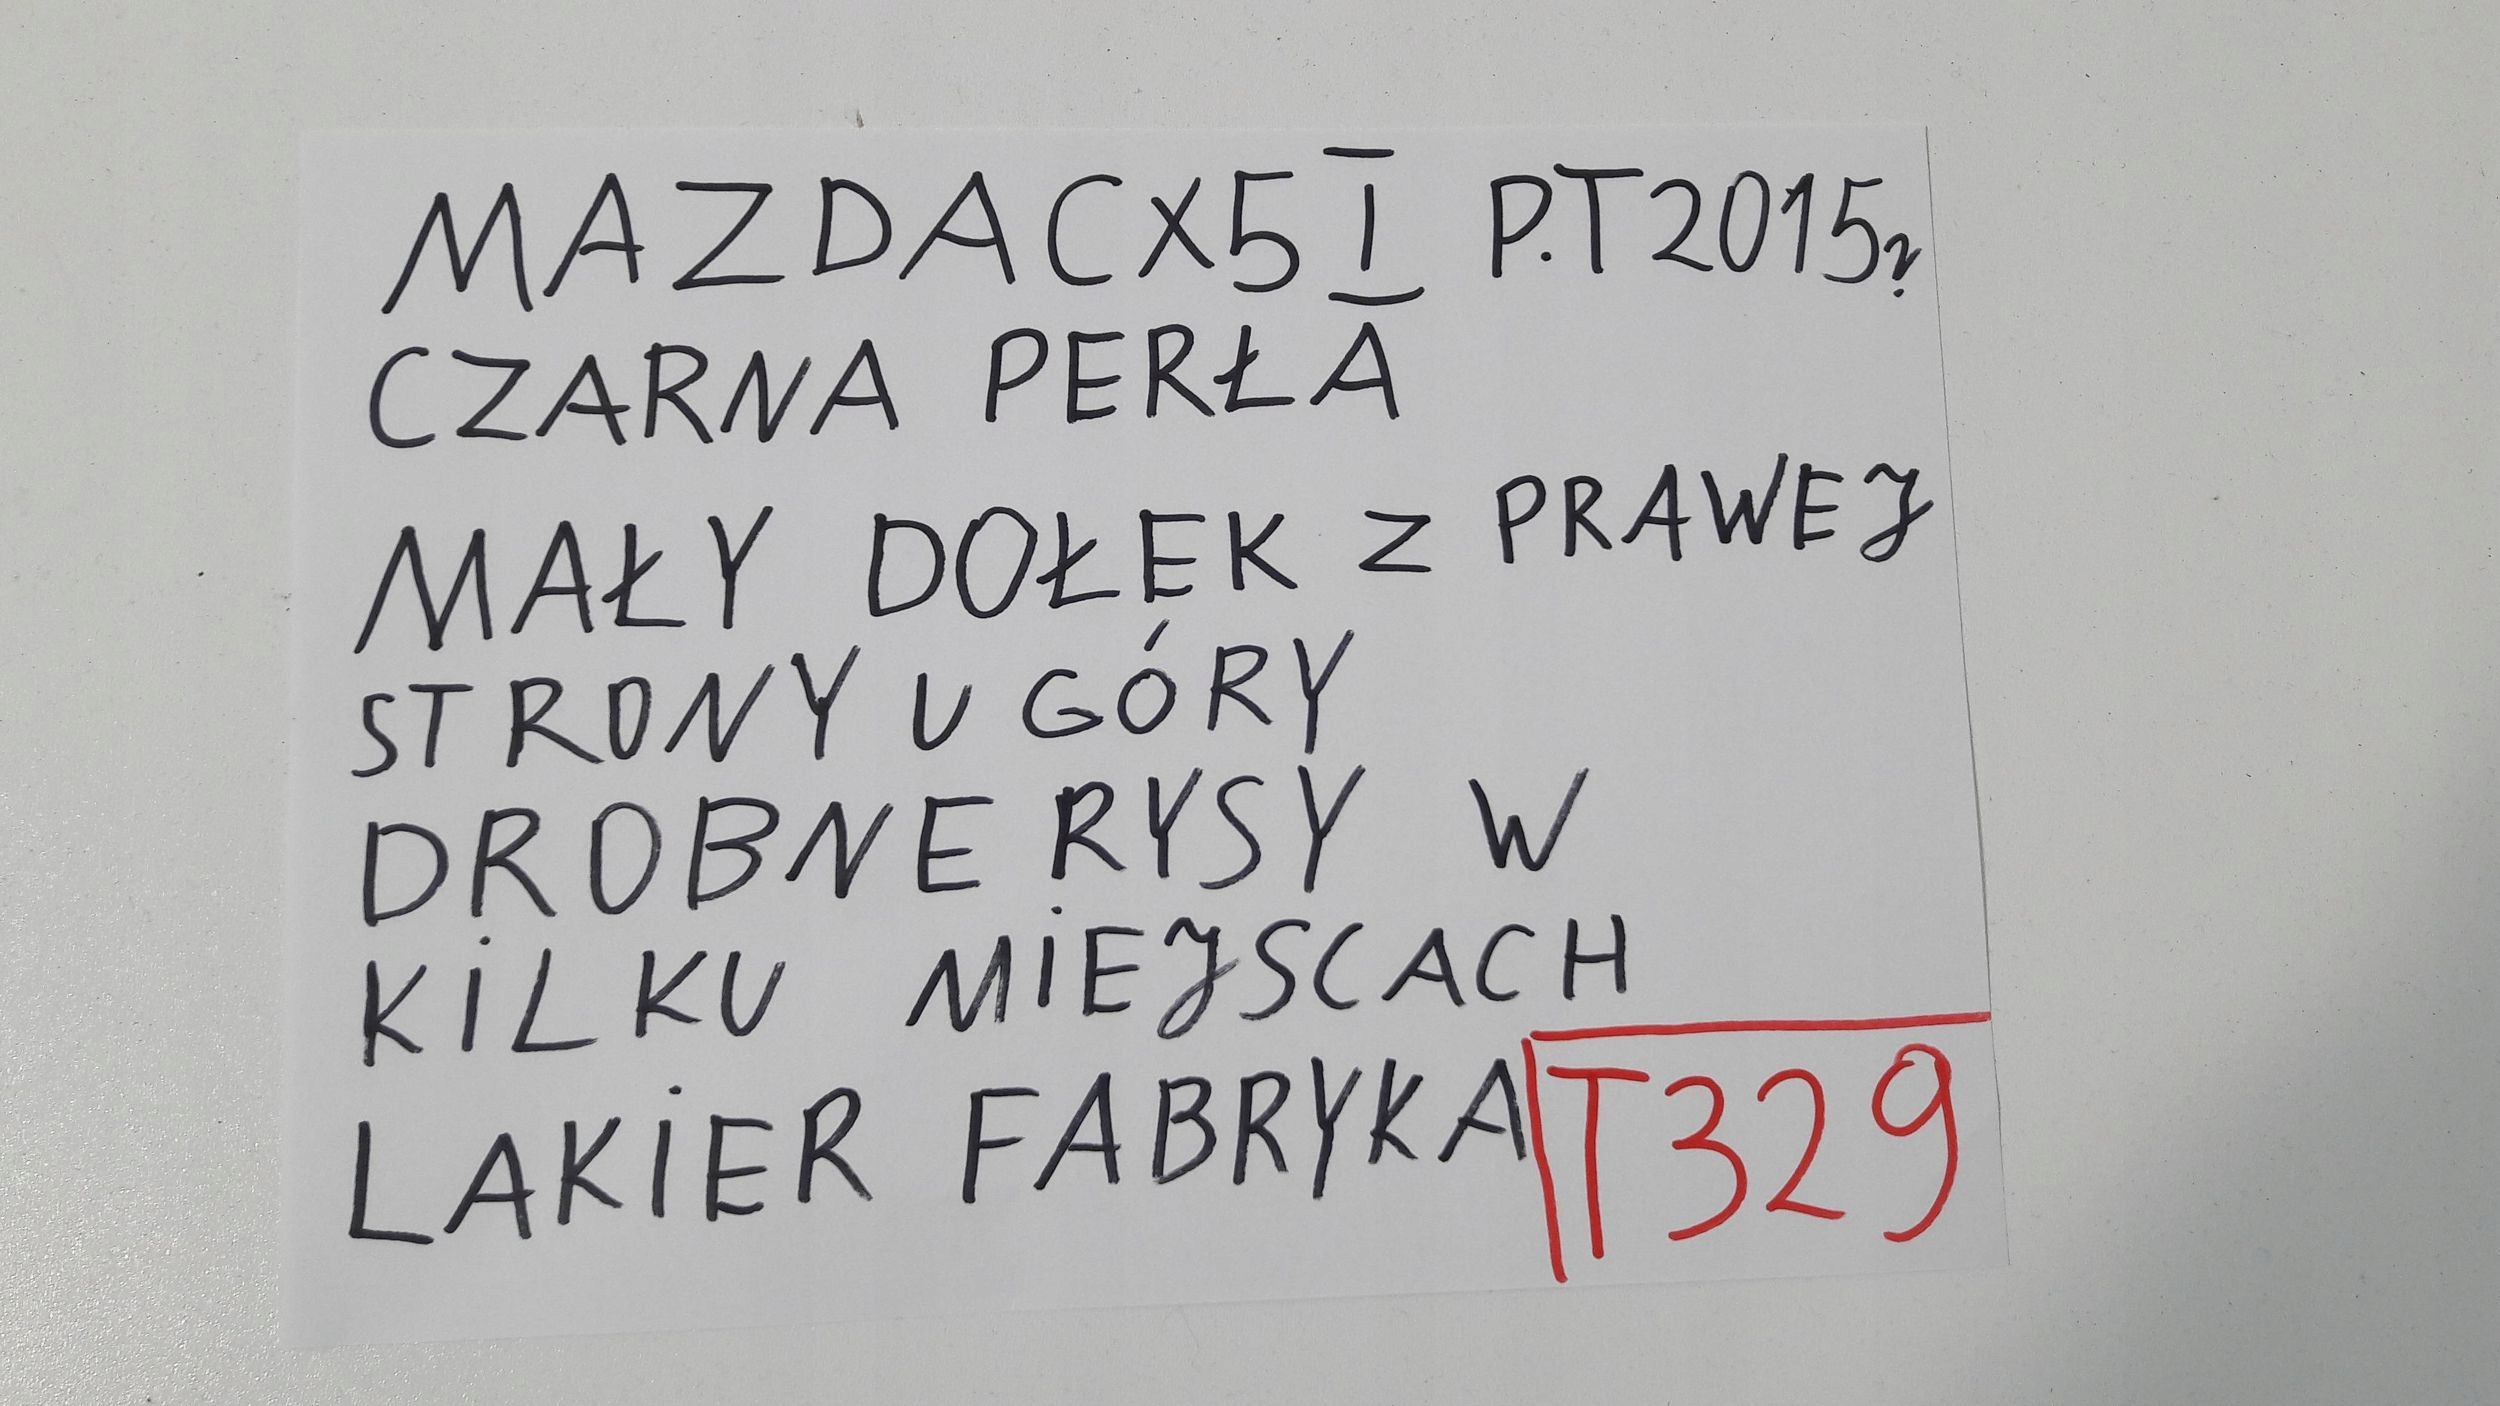 MAZDA CX5 I P.T 2015r.
CZARNA PERŁA
MAŁY DOŁEK Z PRAWEJ
STRONY U GÓRY
DROBNE RYSY W
KILKU MIEJSCACH
LAKIER FABRYKA T329